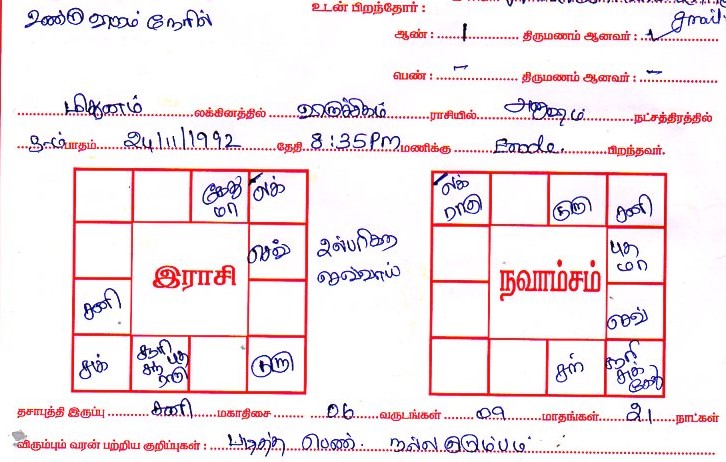 உடன் பிறந்தோர் :
உண்டு ஏலம் நேரில்
ஆண் : 1 திருமணம் ஆனவர் :
பெண் : – திருமணம் ஆனவர் : –
மிதுனம் லக்கினத்தில் விருச்சிகம் ராசியில் அனுஷம் நட்சத்திரத்தில்
பாதம் 24/11/1992 தேதி 8:35PM மணிக்கு Erode. பிறந்தவர்.
கேது மா லக்
லக் ராகு குரு சனி
செவ் புத மா
இராசி
நவாம்சம்
செவ்வாய்
சனி செவ்
சுக் சூரி சந் புத ராகு குரு
சந் சூரி சுக் கேது
தசாபுத்தி இருப்பு சனி மகாதிசை 06 வருடங்கள் 09 மாதங்கள் 21 நாட்கள்
விரும்பும் வரன் பற்றிய குறிப்புகள் : படித்த பெண். நல்ல குடும்பம்